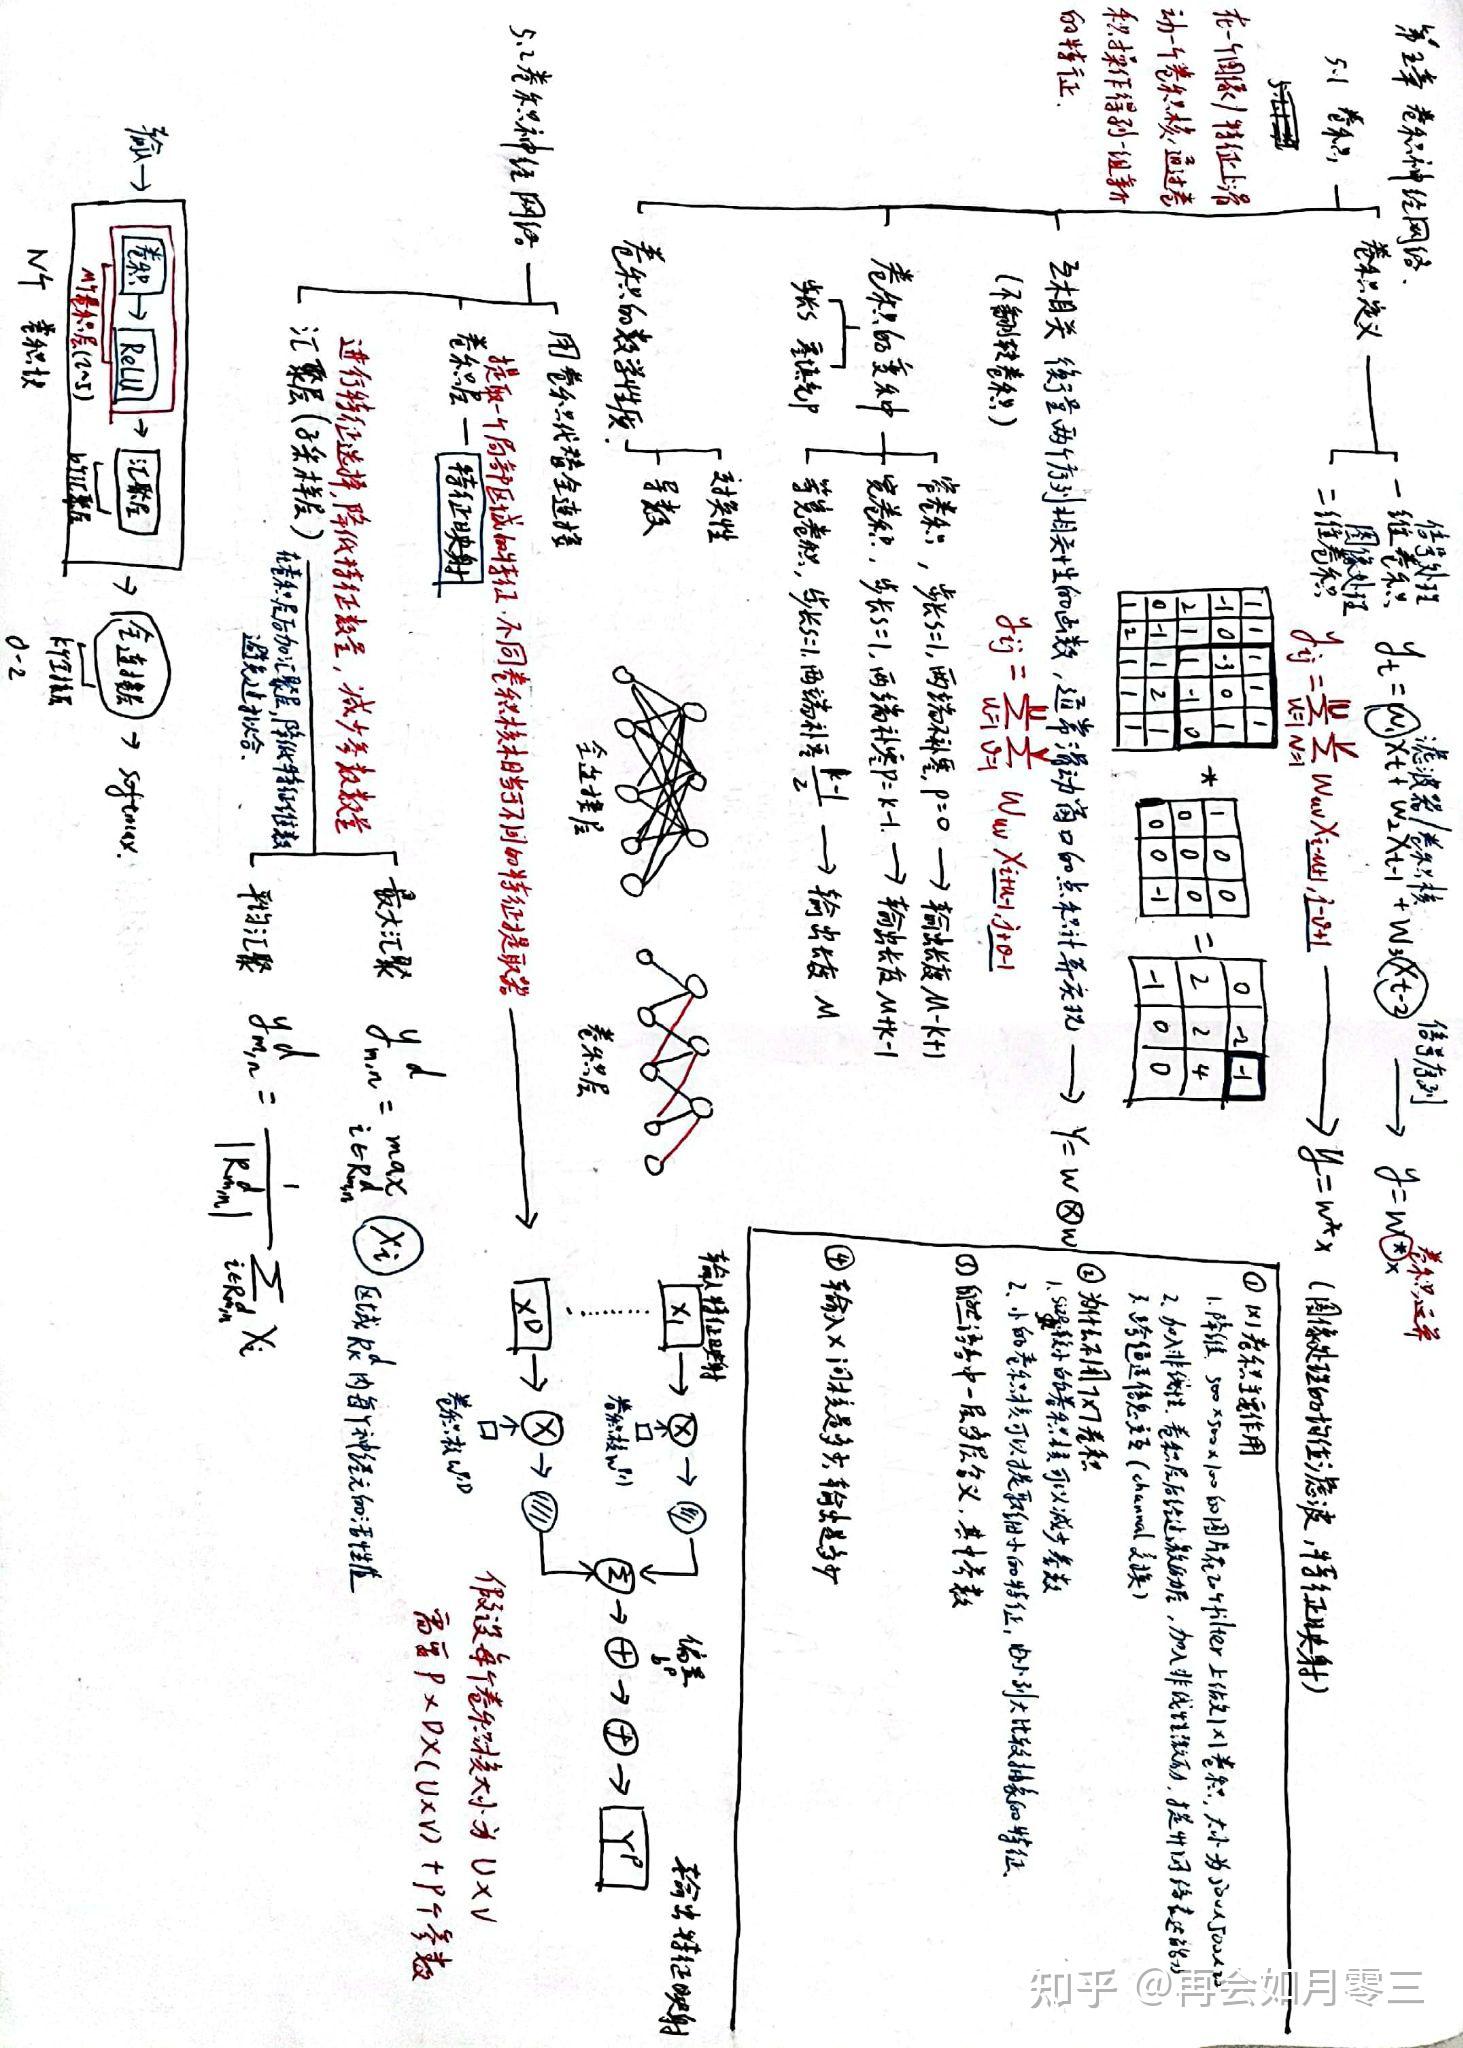 第五章 卷积神经网络.
5.1 卷积
在一个图像/特征上滑
动一个卷积核,通过卷
积操作得到一组新
的特征.
卷积定义
信号处理
一维卷积
图像处理
二维卷积
滤波器/卷积核
信号序列
yt = w1 xt + w2 xt-1 + w3 xt-2 → y = w * x
卷积运算
yij = Σ Σ wuv xi-u+1, j-v+1 → y = w * x (图像处理的均值滤波,特征映射)
u=1 v=1
1 1 1 1 1
-1 0 -3 0 1
2 1 1 -1 0
0 -1 1 2 1
1 2 1 1 1
*
1 0 0
0 0 0
0 0 -1
=
0 -2 -1
2 2 4
-1 0 0
互相关 衡量两个序列相关性的函数,通常滑动窗口的点积计算实现 → Y = W ⊗ w
(不翻转卷积)
yij = Σ Σ wuv xi+u-1, j+v-1
u=1 v=1
卷积的变种
步长s 零填充p
窄卷积, 步长s=1, 两端不补零, p=0 → 输出长度 M-k+1
宽卷积, 步长s=1, 两端补零p=k-1. → 输出长度M+k-1
等宽卷积, 步长s=1, 两端补零 k-1/2 → 输出长度 M
卷积的数学性质.
交换性
导数
① 1x1卷积主要作用
1. 降维. 500x500x100的图片在20个filter上做1x1卷积, 大小为500x500x20
2. 加入非线性. 卷积层后经过激励层, 加入非线性激励, 提升网络表达能力
3. 跨通道信息交互 (channal变换)
② 为什么不用7x7卷积
1. 较小的卷积核可以减少参数
2. 小的卷积核可以提取细小的特征, 由小到大比较抽象的特征
④ 输入x 问核是多少, 输出是多少
5.2 卷积神经网络.
用卷积代替全连接
全连接层
卷积层
提取一个局部区域的特征. 不同卷积核相当于不同的特征提取器
卷积层 — 特征映射
输入特征映射
X1 → ⊗ →
卷积核w
XD → ⊗ →
卷积核w
Σ → + → + → YP
偏置
bP
输出特征映射
假设每个卷积核大小为 U×V
需要 P×D×(U×V)+P个参数
进行特征选择, 降低特征数量, 减少参数数量
汇聚层 (子采样层)
在卷积层后加汇聚层, 降低特征维数
避免过拟合.
最大汇聚 ydm,n = max xi 区域Rdk内每个神经元的活性值
i∈Rdm,n
平均汇聚 ydm,n = 1/|Rdm,n| Σ xi
i∈Rdm,n
输入 → 卷积 → ReLU → 汇聚层 → 全连接层 → softmax.
M个卷积层(2~5)
b个汇聚层
K个全连接
0~2
N个 卷积块
知乎 @再会如月零三